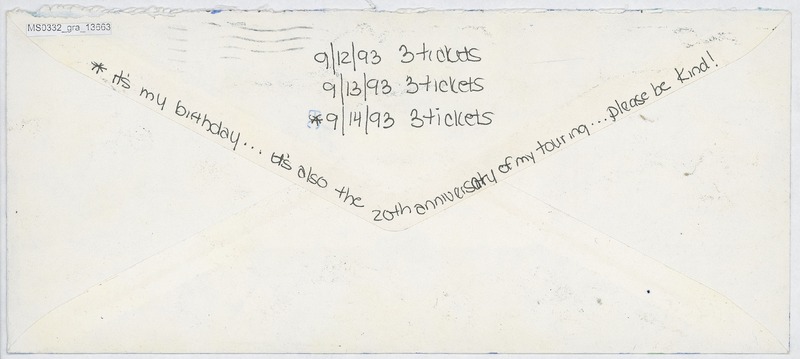 MS0332_gra_13663
9/12/93 3 tickets
9/13/93 3 tickets
*9/14/93 3 tickets
* it's my birthday... it's also the 20th anniversary of my touring... please be kind!